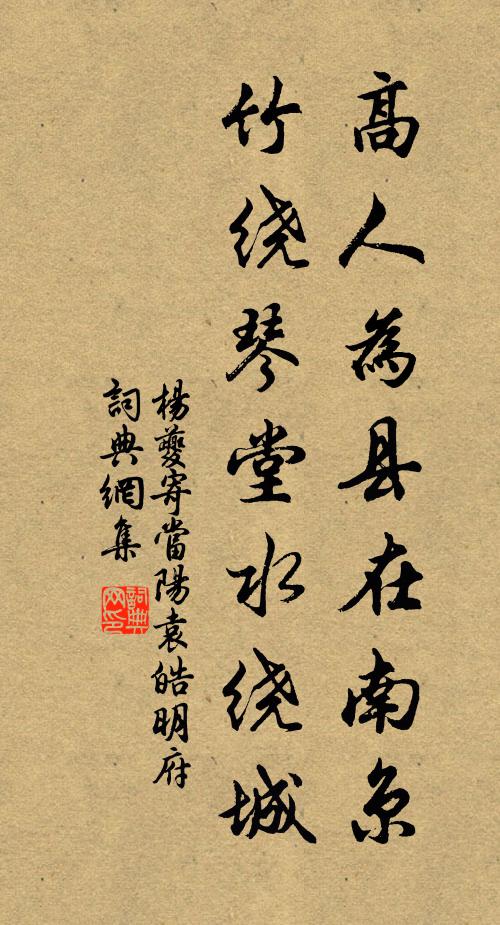 高人為县在南京
竹绕琴堂水绕城
楊夔寄當陽袁皓明府
詞典網集
詞典网印